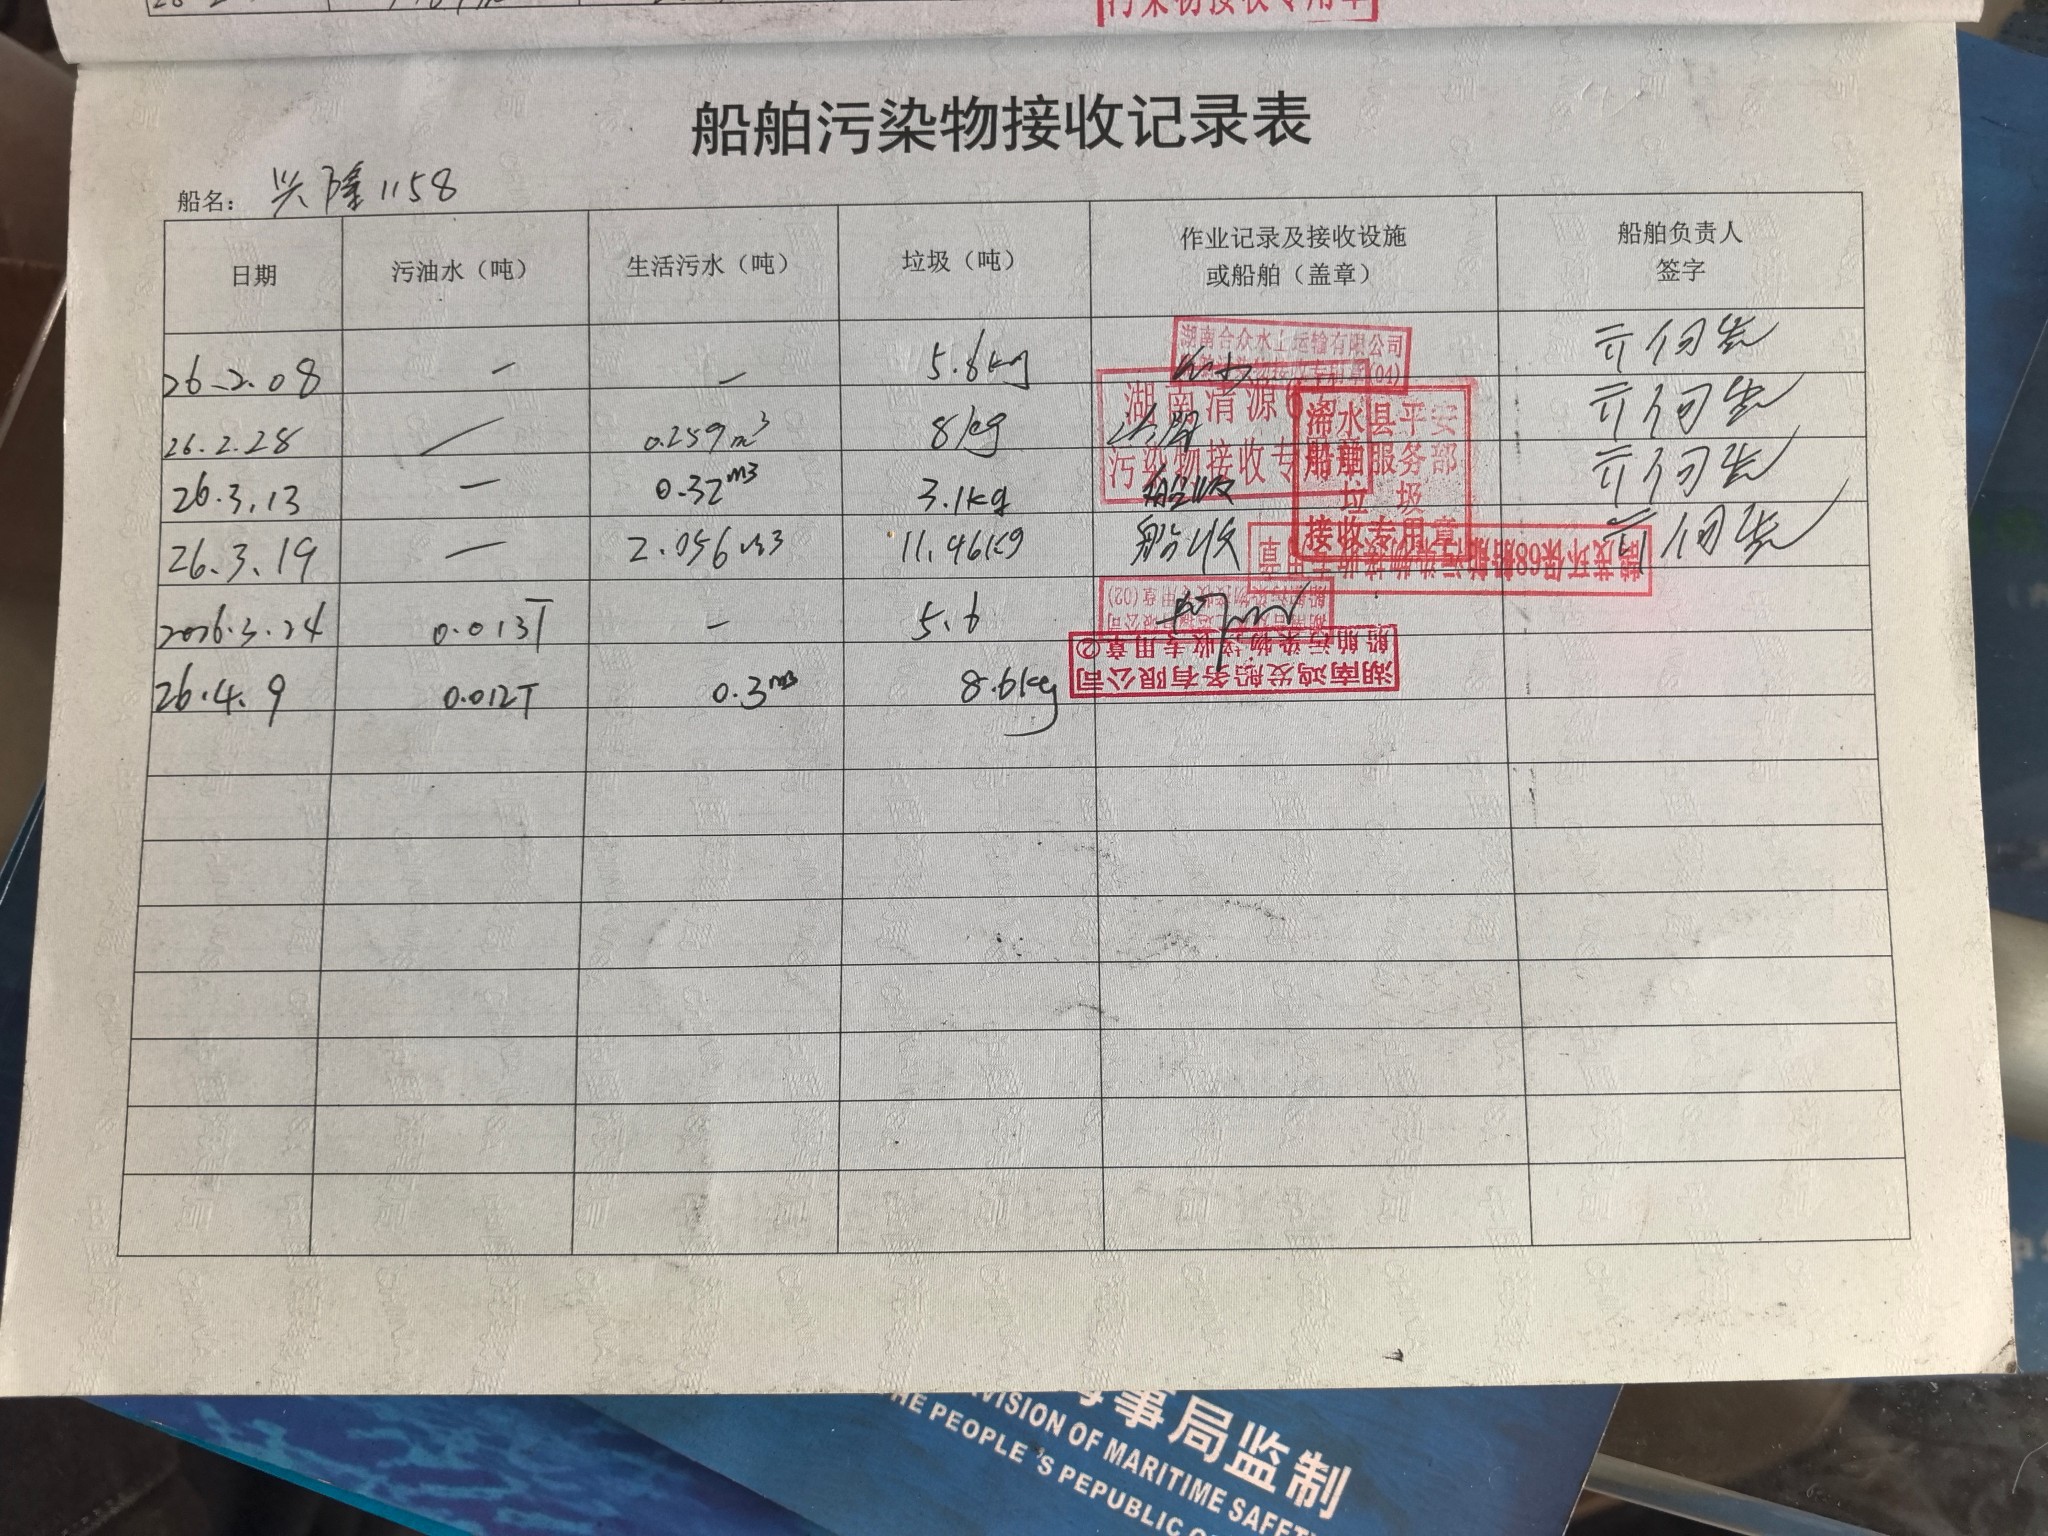 污染物接收专用章
船舶污染物接收记录表
船名: 兴隆1158
日期 污油水（吨） 生活污水（吨） 垃圾（吨） 作业记录及接收设施或船舶（盖章） 船舶负责人签字
26.2.08 — — 5.6kg
湖南合众水上运输有限公司
(04)
26.2.28 / 0.259m³ 8kg
湖南清源
污染物接收专用章
26.3.13 — 0.32m3 3.1kg 船收
浠水县平安
船舶服务部
垃圾
接收专用章
26.3.19 — 2.056m3 11.46kg 船收
环保68船舶污染物接收专用章
2026.3.24 0.013T — 5.6
(02)
26.4.9 0.012T 0.3m3 8.6kg
湖南鸿发船务有限公司
船舶污染物接收专用章②
海事局监制
VISION OF MARITIME SAFET
HE PEOPLE'S PEPUBLIC O